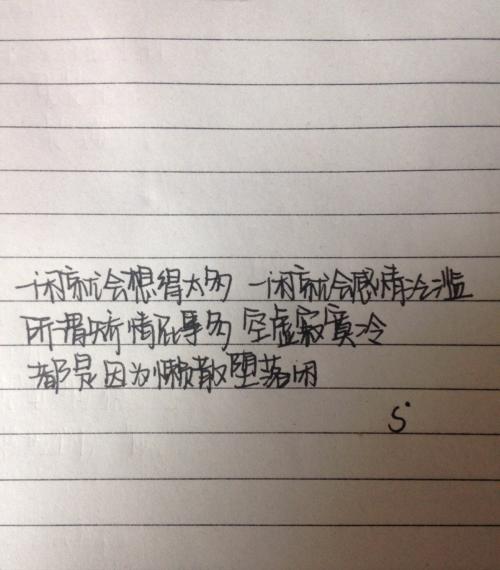 一闲就会想得太多 一闲就会感情泛滥
所谓矫情屁事多 空虚寂寞冷
都是因为懒散堕落闲
S